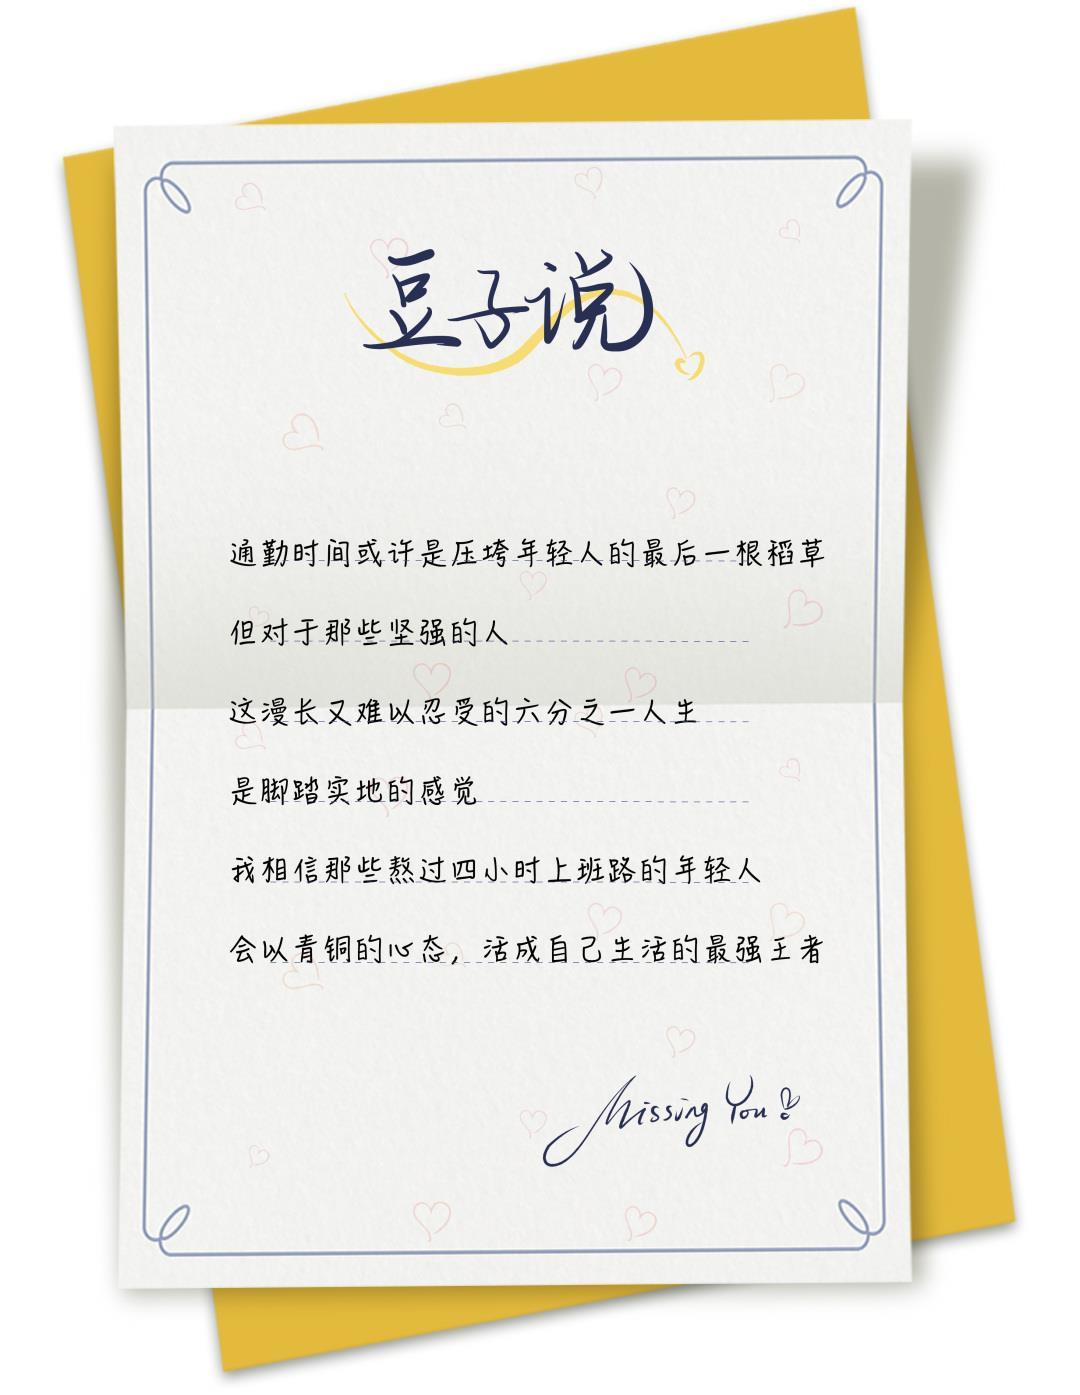 豆子说
通勤时间或许是压垮年轻人的最后一根稻草
但对于那些坚强的人
这漫长又难以忍受的六分之一人生
是脚踏实地的感觉
我相信那些熬过四小时上班路的年轻人
会以青铜的心态，活成自己生活的最强王者
Missing You